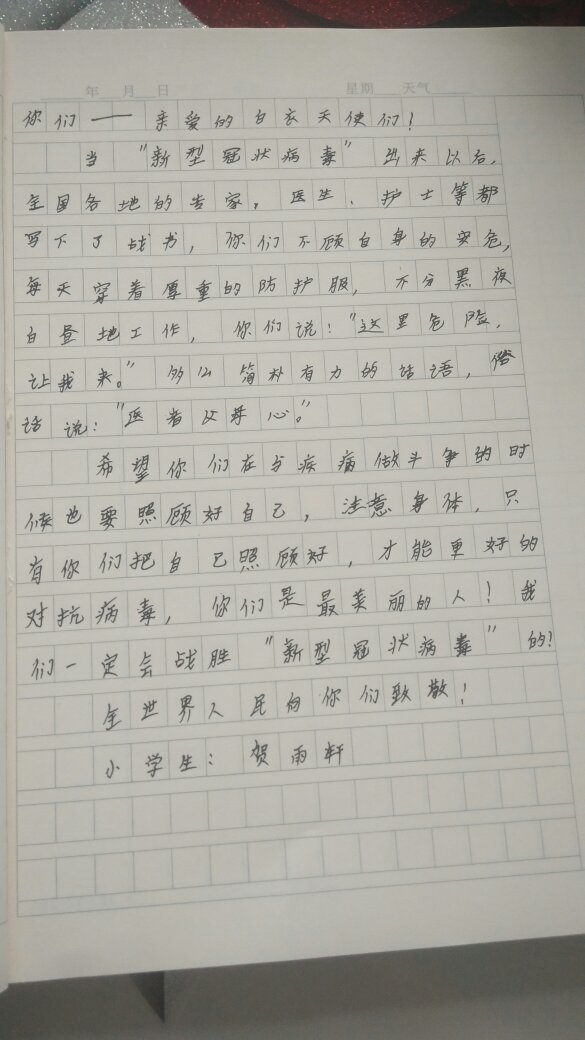 年 月 日 星期 天气
你们——亲爱的白衣天使们!
当“新型冠状病毒”出来以后,
全国各地的专家,医生、护士等都
写下了战书,你们不顾自身的安危,
每天穿着厚重的防护服,不分黑夜
白昼地工作,你们说:“这里危险,
让我来。”多么简朴有力的话语,俗
话说:“医者父母心。”
希望你们在与疾病做斗争的时
候也要照顾好自己,注意身体,只
有你们把自己照顾好,才能更好的
对抗病毒,你们是最美丽的人!我
们一定会战胜“新型冠状病毒”的!
全世界人民向你们致敬!
小学生:贺雨轩